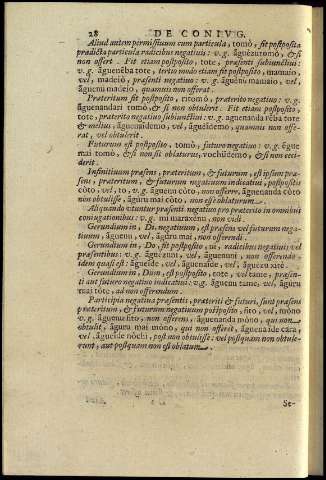 28 DE CONIVG.
Aliud autem permissiuum cum particula, tomò, fit postposita
prædicta particula radicibus negatiuis: v.g. àguèzutomò, & si
non offert. Fit etiam postposito, tote, præsenti subiunctiui:
v.g. àguenêba tote, tertio modo etiam fit postposito, mamaio,
vel, madeiò, præsenti negatiuo: v.g. àguenu mamaiò, vel,
àguenu madeiò, quamuis non offerat.
Præteritum fit postposito, ritomò, præterito negatiuo: v.g.
àguenandari tomò, & si non obtulerit. Fit etiam postposito,
tote, præterito negatiuo subiunctiui: v.g. aguenanda rèba tote
& melius, àguenaidemo, vel, àgueidemo, quamuis non offe-
rat, vel obtulerit.
Futurum est postposito, tomò, futuro negatiuo: v.g. ègue
mai tomò, & si non sit oblaturus, vochiidemo, & si non ceci-
derit.
Infinitiuum præsens, præteritum, & futurum, est ipsum præ-
sens, præteritum, & futurum negatiuum indicatiui, postpositis
còto, vel, to, v.g. àguenu còto, non offerre, àguenanda còto
non obtulisse, àguru mai còto, non esse oblaturum.
Aliquando vtuntur præsenti negatiuo pro præterito in omnibus
coniugationibus: v.g. mi marxenu, non vidi.
Gerundium in, Di. negatiuum, est præsens vel futurum nega-
tiuum: v.g. àguenu, vel, àguru mai, non offerendi.
Gerundium in, Do, fit postposito, ni, radicibus negatiuis vel
præsentibus: v.g. àguezuni, vel, àguenuni, non offerendo,
idem quasi est: àgueide, vel, àguenaide, vel, àguezu xitè.
Gerundium in, Dum, est postposito, tote, vel tame, præsen-
ti aut futuro negatiuo indicatiui: v.g. àguenu tame, vel, àguru
mai tote, ad non offerendum.
Participia negatiua præsentis, præteriti & futuri, sunt præsens
præteritum, & futurum negatiuum postposito, fito, vel, mòno
v.g. àguenu fito, non offerens, àguenanda mòno, qui non
obtulit, àguru mai mòno, qui non offeret, àguenaide cara,
vel, àgueide nòchi, post non obtulisse: vel postquam non obtule-
runt, aut postquam non est oblatum.
Se-